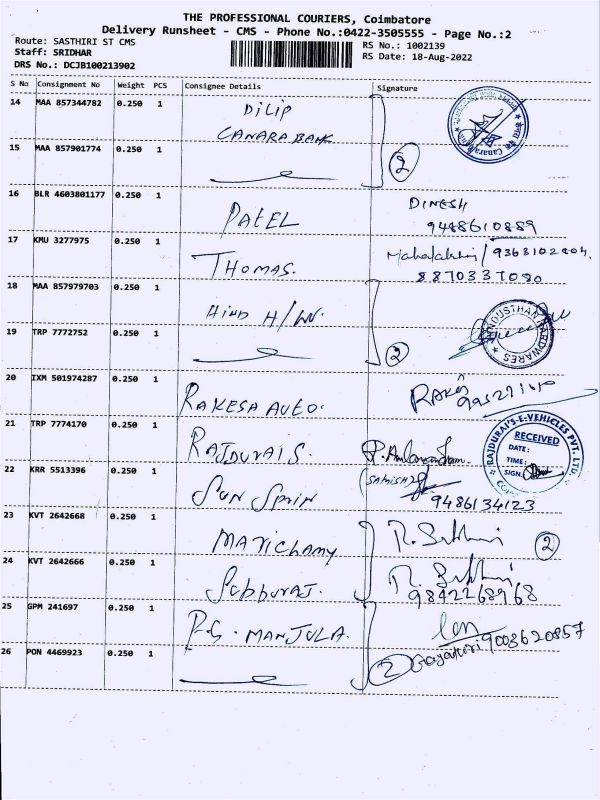 THE PROFESSIONAL COURIERS, Coimbatore
Delivery Runsheet - CMS - Phone No.:0422-3505555 - Page No.:2
Route: SASTHIRI ST CMS
Staff: SRIDHAR
DRS No.: DCJB100213902
RS No.: 1002139
RS Date: 18-Aug-2022
S No Consignment No Weight PCS Consignee Details Signature
14 MAA 857344782 0.250 1 DiLip
CANARA BANK
15 MAA 857901774 0.250 1 2
16 BLR 4603801177 0.250 1 PATEL DINESH
9488610889
17 KMU 3277975 0.250 1 THOMAS. Mahalakshmi / 9363102804.
8870337080
18 MAA 857979703 0.250 1 HIND H/W.
HINDUSTHAN HARDWARES
19 TRP 7772752 0.250 1 2
20 IXM 501974287 0.250 1 RAKESA AUTO.
21 TRP 7774170 0.250 1 RAJDURAIS.
RAJDURAI'S-E-VEHICLES PVT. LTD.
RECEIVED
DATE:
TIME:
SIGN.
22 KRR 5513396 0.250 1 SUN SPRIN (SAMISH)
9486134123
23 KVT 2642668 0.250 1 MARICHAMY 2
24 KVT 2642666 0.250 1 SUBBURAJ.
9842268968
25 GPM 241697 0.250 1 P.G. MANJULA.
Gayathri 9003620857
26 PON 4469923 0.250 1 2